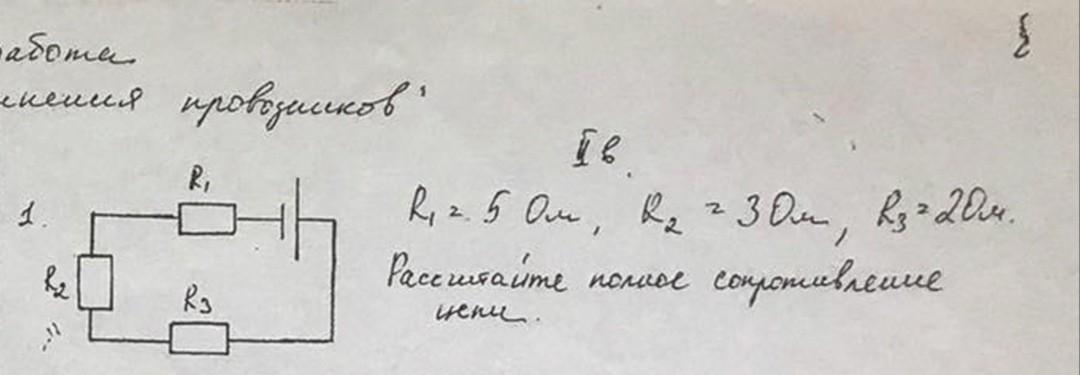 работа
инения проводников"
II в.
1.
R1
R2
R3
R1 = 5 Ом, R2 = 3 Ом, R3 = 2 Ом.
Рассчитайте полное сопротивление
цепи.